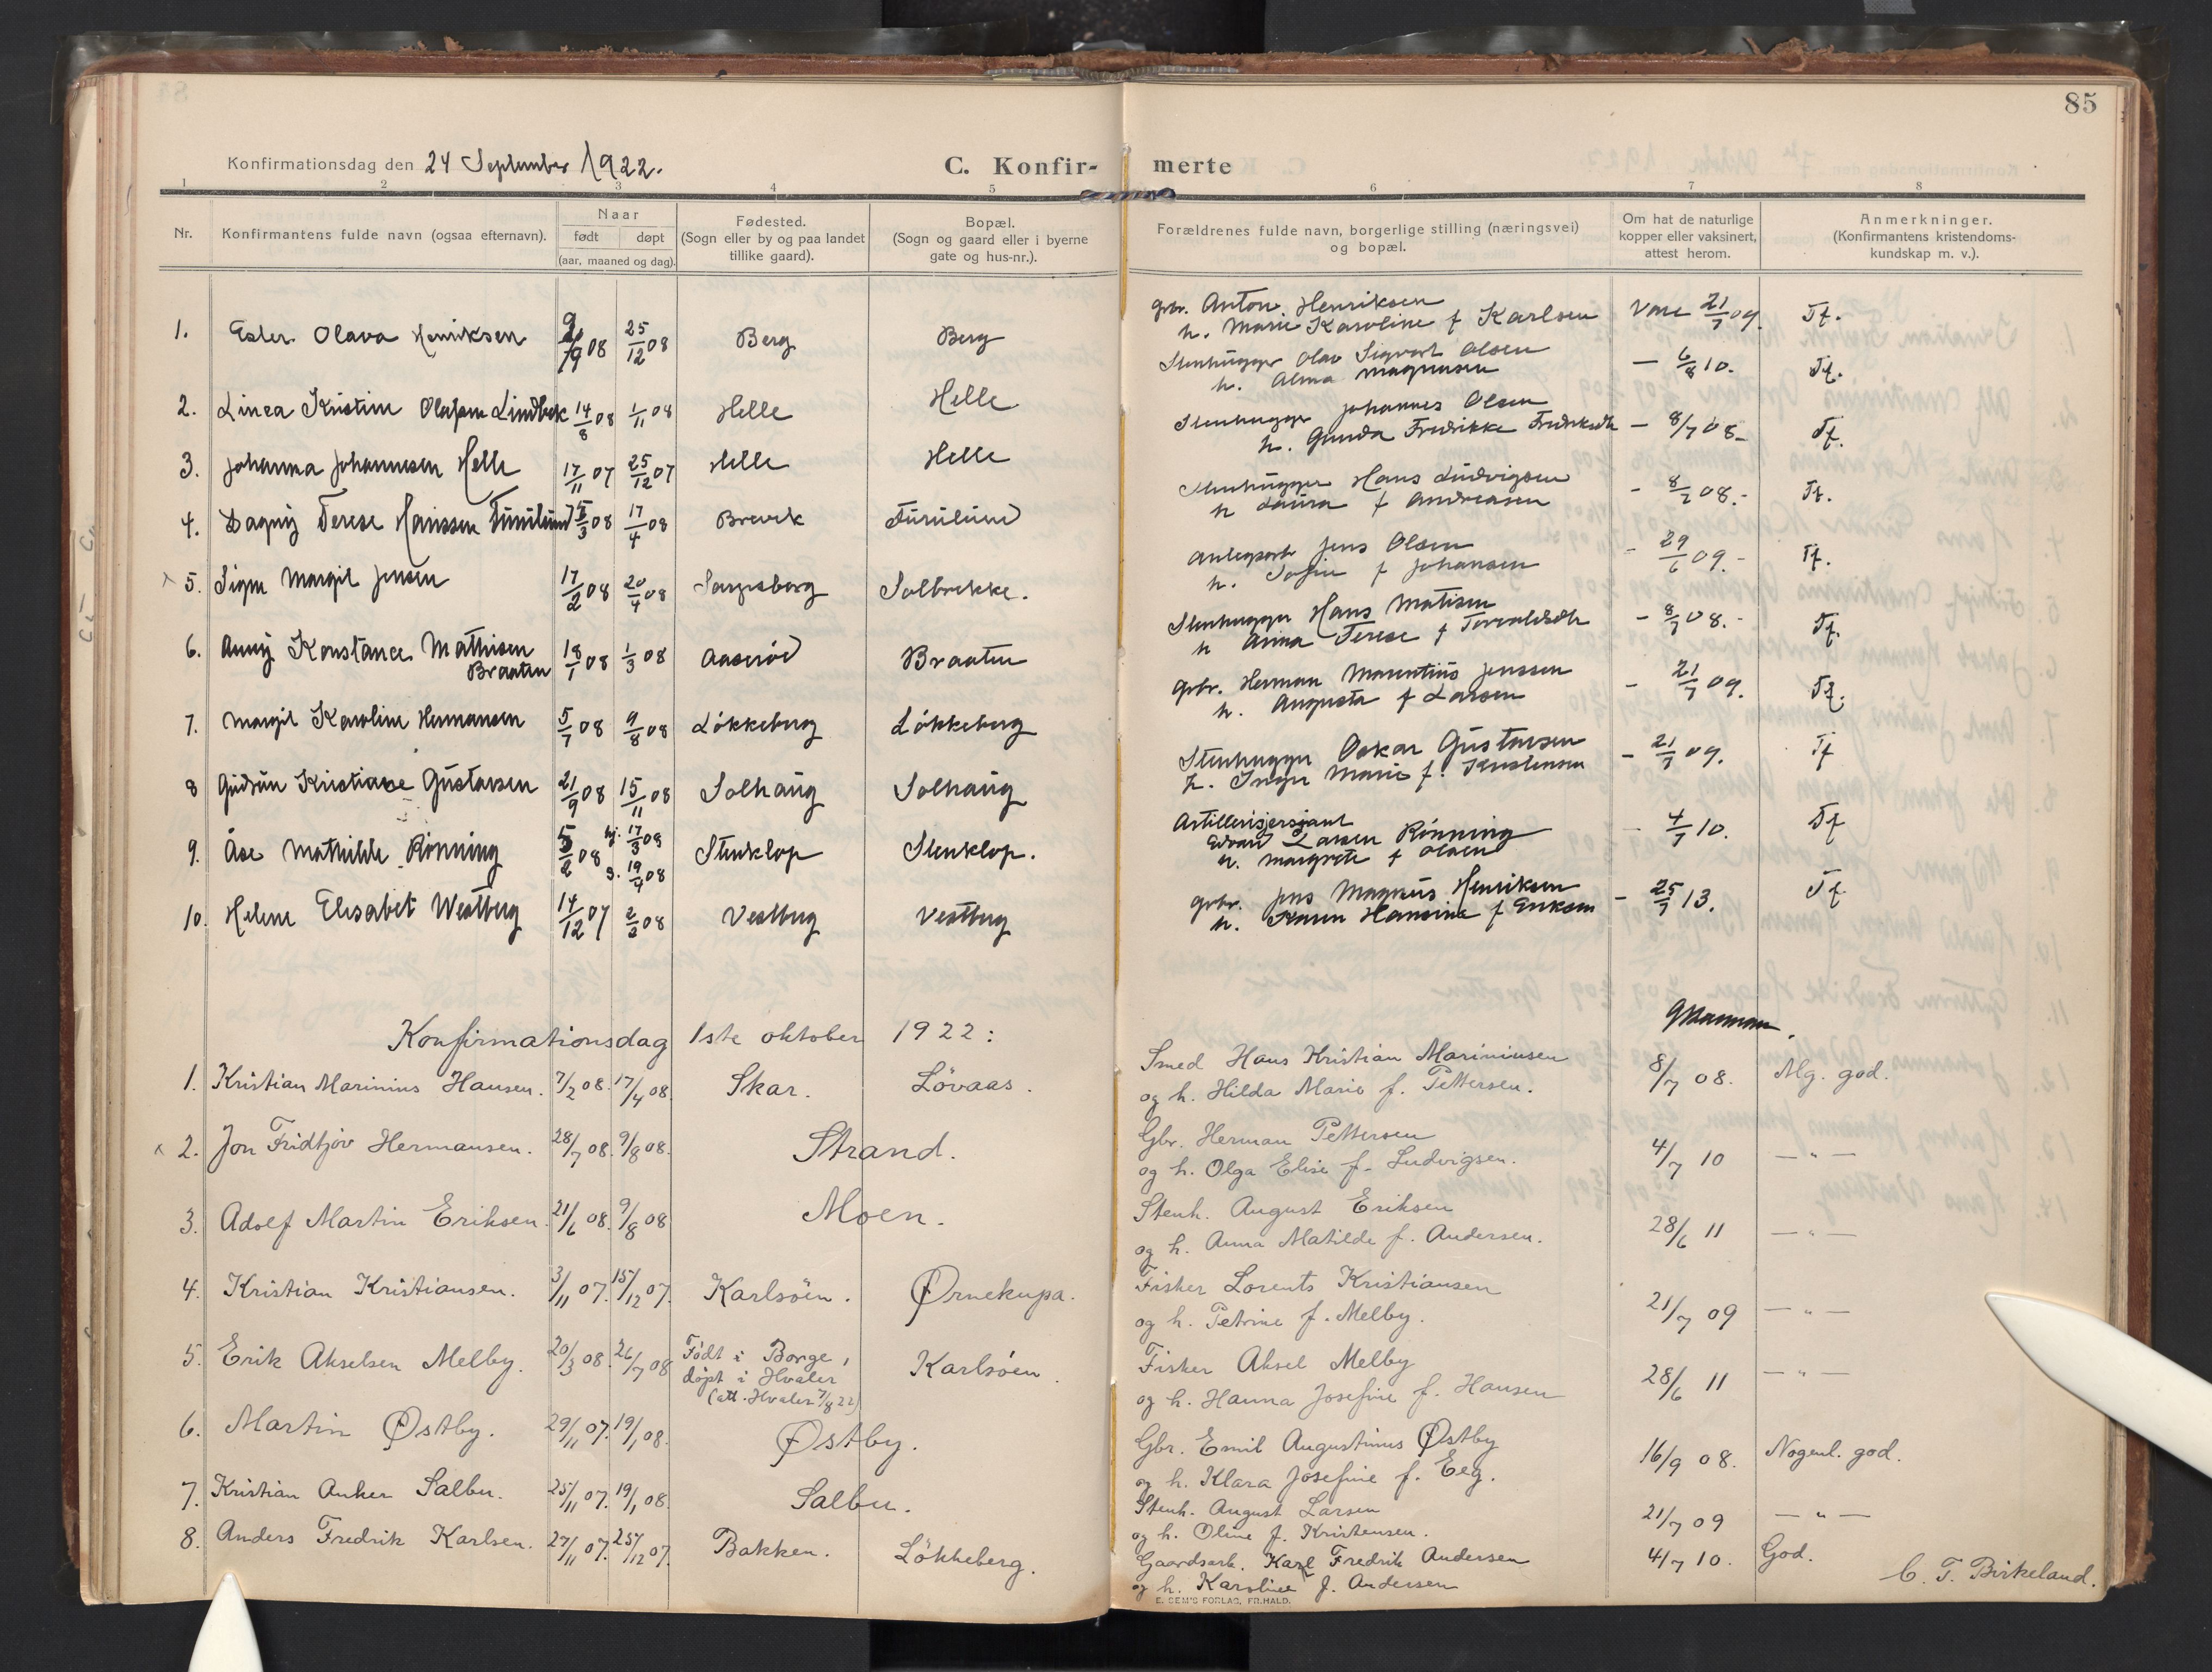 85
Konfirmationsdag den 24 September 1922.
C. Konfir-
merte
1 2 3 4 5 6 7 8
Nr.
Konfirmantens fulde navn (ogsaa efternavn).
Naar
født døpt
(aar, maaned og dag).
Fødested.
(Sogn eller by og paa landet
tillike gaard).
Bopæl.
(Sogn og gaard eller i byerne
gate og hus-nr.).
Forældrenes fulde navn, borgerlige stilling (næringsvei)
og bopæl.
Om hat de naturlige
kopper eller vaksinert,
attest herom.
Anmerkninger.
(Konfirmantens kristendoms-
kundskap m. v.).
1. Ester Olava Henriksen 9/9 08 25/12 08 Berg Berg
gbr. Anton Henriksen
h. Marie Karoline f Karlsen
Vacc 21/7 09. Tf.
2. Linea Kristine Olafsen Lindbek 14/8 08 1/11 08 Helle Helle
Stenhugger Olav Sigvart Olsen
h. Alma Magnusen
— 6/8 10. Tf.
3. Johanna Johannesen Helle 17/11 07 25/12 07 Helle Helle
Stenhugger Johannes Olsen
h. Gunda Fredrikke Fredriksdtr
— 8/7 08- Tf.
4. Dagny Terese Hanssen Furulund 5/3 08 17/4 08 Brevik Furulund
Stenhugger Hans Ludvigsen
h Laura f Andreasen
- 8/7 08.- Tf.
5. Signe Margit Jensen 17/2 08 20/4 08 Sarpsborg Solbrekke.
Anlegsarb Jens Olsen
h. Sofie f Johansen
- 29/6 09.- Tf.
6. Anny Konstance Mathisen
Braaten
18/1 08 1/3 08 Aaserød Braaten
Stenhugger Hans Matisen
h Anna Terese f Torvaldsdtr
- 8/7 08.- Tf.
7. Margit Karoline Hermansen 5/7 08 9/8 08 Løkkeberg Løkkeberg
gbr. Herman Marentius Jenssen
h. Augusta f Larsen
- 21/7 09. Tf.
8 Gudrun Kristiane Gustavsen 21/9 08 15/11 08 Solhaug Solhaug
Stenhugger Oskar Gustavsen
h. Inger Marie f. Kristensen
- 21/7 09. Tf
9. Åse Mathilde Rønning 5/2 08 hj. 17/3 08
19/4 08 Stenklop Stenklop.
Artillerisersjant
Edvard Larsen Rønning
h. Margrete f Olsen
- 4/7 10. Tf
10. Helene Elisabet Westberg 14/12 07 2/2 08 Vestberg Vestberg
gbr. Jens Magnus Henriksen
h. Karen Hansine f Eriksen
- 25/7 13. Tf
Konfirmationsdag 1ste oktober 1922:
1. Kristian Marinius Hansen. 7/2 08. 17/4 08. Skar. Løvaas.
Smed Hans Kristian Mariniusen
og h. Hilda Marie f. Pettersen.
8/7 08. Mg. god.
2. Jon Fridtjov Hermansen. 28/7 08. 9/8 08. Strand.
Gbr. Herman Pettersen
og h. Olga Elise f. Ludvigsen.
4/7 10 — " —
3. Adolf Martin Eriksen. 21/6 08. 9/8 08 Moen.
Stenh. August Eriksen
og h. Anna Matilde f. Andersen.
28/6 11 — " —
4. Kristian Kristiansen. 3/11 07. 15/12 07. Karlsøen. Ørnekupa.
Fisker Lorents Kristiansen
og h. Petrine f. Melby.
21/7 09 — " —
5. Erik Akselsen Melby. 20/3 08. 26/7 08 Født i Borge,
døpt i Hvaler
(att. Hvaler 7/8 22)
Karlsøen.
Fisker Aksel Melby
og h. Hanna Josefine f. Hansen
28/6 11 — " —
6. Martin Østby. 29/11 07. 19/1 08. Østby.
Gbr. Emil Augustinus Østby
og h. Klara Josefine f. Eeg.
16/9 08. Nogenl. god.
7. Kristian Anker Salbu. 25/11 07. 19/1 08. Salbu.
Stenh. August Larsen
og h. Oline f. Kristensen.
21/7 09 — " —
8. Anders Fredrik Karlsen. 27/11 07. 25/12 07. Bakken. Løkkeberg.
Gaardsarb. Karl Fredrik Andersen
og h. Karoline f. Andersen
4/7 10. God.
C. T. Birkeland.
E. SEM'S FORLAG, FR.HALD.